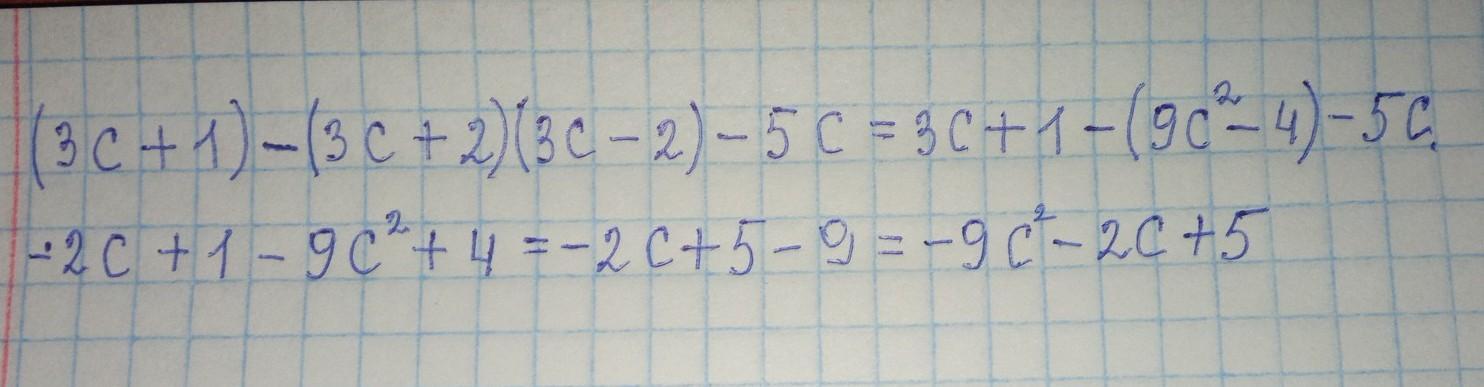 (3c+1)-(3c+2)(3c-2)-5c=3c+1-(9c²-4)-5c.
-2c+1-9c²+4=-2c+5-9=-9c²-2c+5